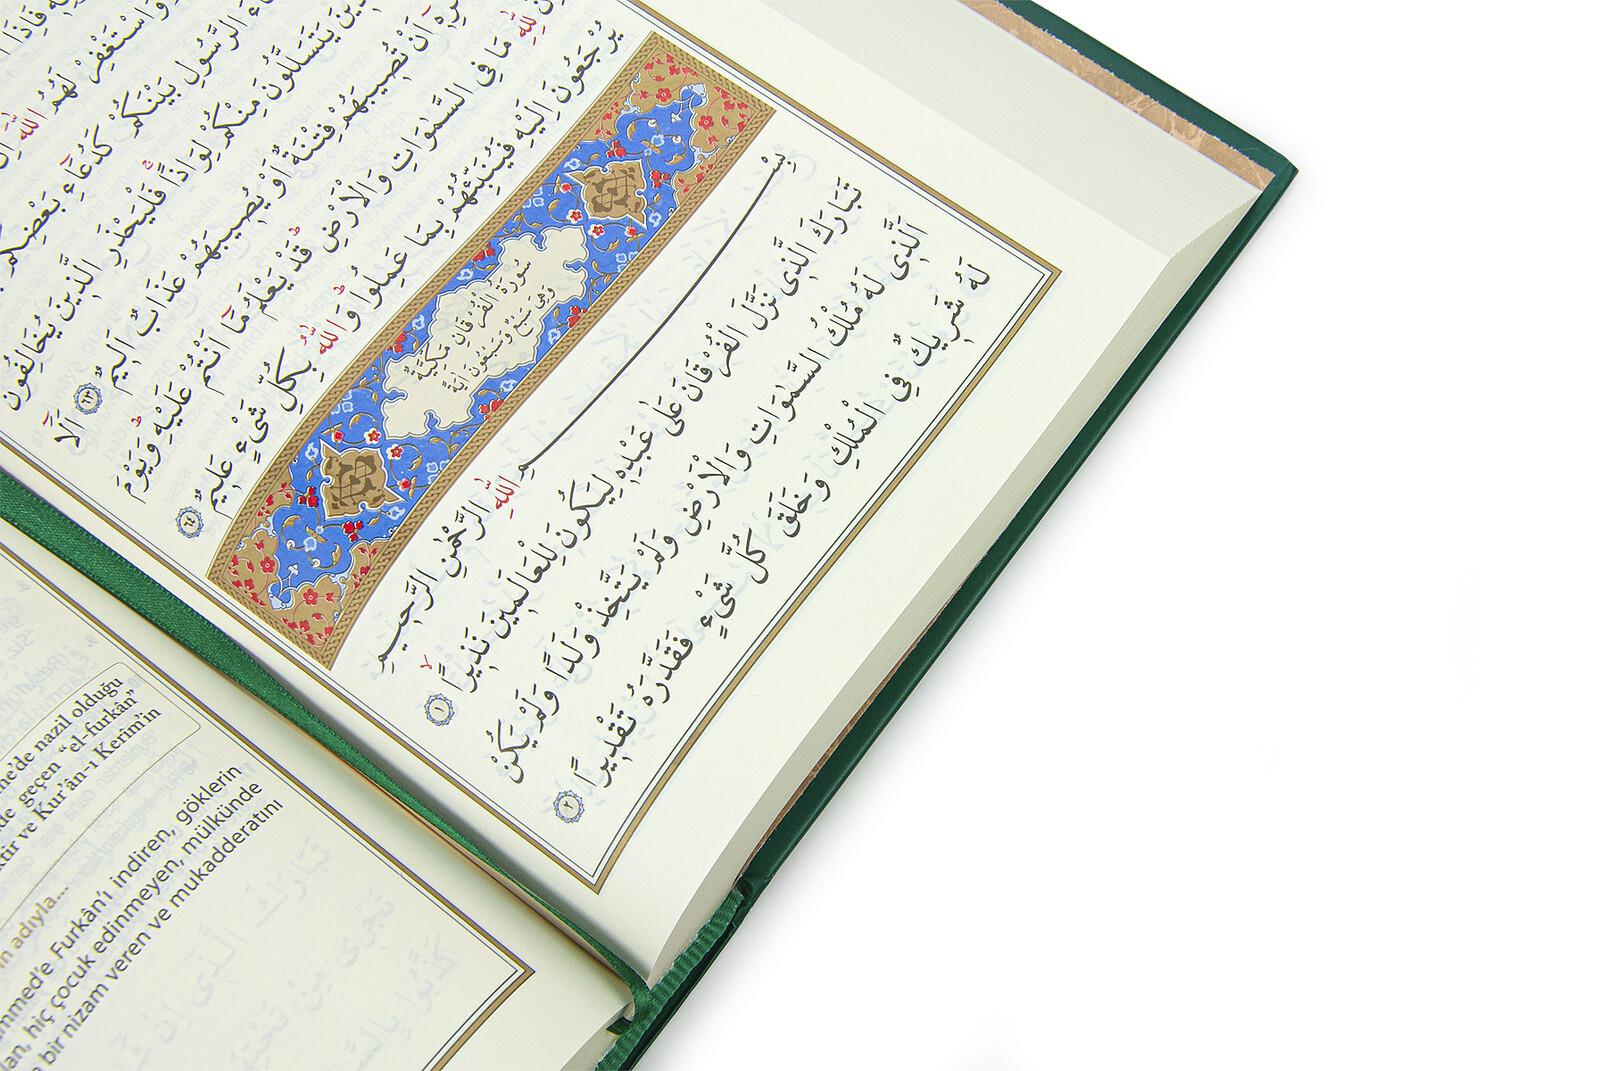 فَاِذَا
وَاسْتَغْفِرْ لَهُمُ اللّٰهَۜ
الرَّسُولِ بَيْنَكُمْ كَدُعَٓاءِ بَعْضِكُمْ
يَتَسَلَّلُونَ مِنْكُمْ لِوَاذًاۚ فَلْيَحْذَرِ الَّذ۪ينَ يُخَالِفُونَ
اَنْ تُص۪يبَهُمْ فِتْنَةٌ اَوْ يُص۪يبَهُمْ عَذَابٌ اَل۪يمٌ ٦٣ اَلَٓا
لِلّٰهِ مَا فِي السَّمٰوَاتِ وَالْاَرْضِۜ قَدْ يَعْلَمُ مَٓا اَنْتُمْ عَلَيْهِۜ وَيَوْمَ
يُرْجَعُونَ اِلَيْهِ فَيُنَبِّئُهُمْ بِمَا عَمِلُواۜ وَاللّٰهُ بِكُلِّ شَيْءٍ عَل۪يمٌ ٦٤
سُورَةُ الْفُرْقَانِ مَكِّيَّةٌ
وَهِيَ سَبْعٌ وَسَبْعُونَ اٰيَةً
بِسْمِ اللّٰهِ الرَّحْمٰنِ الرَّح۪يمِ
تَبَارَكَ الَّذ۪ي نَزَّلَ الْفُرْقَانَ عَلٰى عَبْدِه۪ لِيَكُونَ لِلْعَالَم۪ينَ نَذ۪يرًاۙ ١
اَلَّذ۪ي لَهُ مُلْكُ السَّمٰوَاتِ وَالْاَرْضِ وَلَمْ يَتَّخِذْ وَلَدًا وَلَمْ يَكُنْ
لَهُ شَر۪يكٌ فِي الْمُلْكِ وَخَلَقَ كُلَّ شَيْءٍ فَقَدَّرَهُ تَقْد۪يرًا ٢
nazil olduğu
geçen “el-furkân”
ve Kur’ân-ı Kerîm’in
adıyla...
Furkân’ı indiren, göklerin
hiç çocuk edinmeyen, mülkünde
bir nizam veren ve mukadderatını